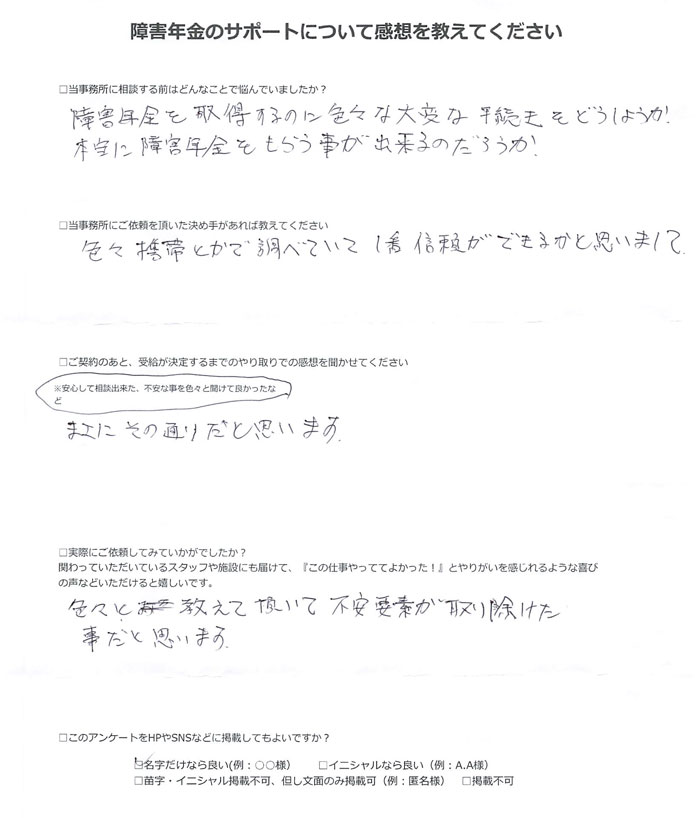 障害年金のサポートについて感想を教えてください
□当事務所に相談する前はどんなことで悩んでいましたか？
障害年金を取得するのに色々な大変な手続きをどうしようか!
本当に障害年金をもらう事が出来るのだろうか!
□当事務所にご依頼を頂いた決め手があれば教えてください
色々携帯とかで調べていて1番信頼ができるかと思いまして.
□ご契約のあと、受給が決定するまでのやり取りでの感想を聞かせてください
※安心して相談出来た、不安な事を色々と聞けて良かったな
ど
まさにその通りだと思います.
□実際にご依頼してみていかがでしたか？
関わっていただいているスタッフや施設にも届けて、『この仕事やっててよかった！』とやりがいを感じれるような喜び
の声などいただけると嬉しいです。
色々と教えて頂いて不安要素が取り除けた
事だと思います.
□このアンケートをHPやSNSなどに掲載してもよいですか？
☑名字だけなら良い(例：○○様） □イニシャルなら良い（例：A.A様）
□苗字・イニシャル掲載不可、但し文面のみ掲載可（例：匿名様） □掲載不可